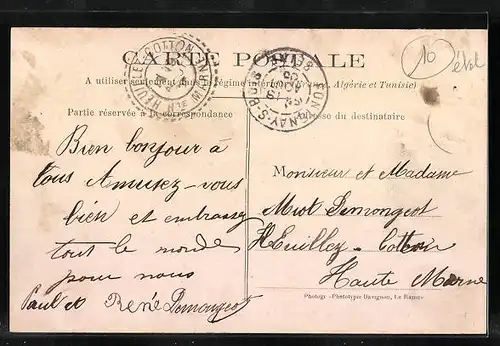 CARTE POSTALE
A utiliser seulement dans le régime intérieur (France, Algérie et Tunisie)
Partie réservée à la correspondance
Adresse du destinataire
10
Bien bonjour à
tous Amusez-vous
bien et embrassez
tout le monde
pour nous
Paul et René Demongeot
Monsieur et Madame
Miot Demongeot
Heuilley-Cotton
Haute Marne
HEUILLEY-COTTON
HTE MARNE
FONTENAY-S-BOIS
SEINE